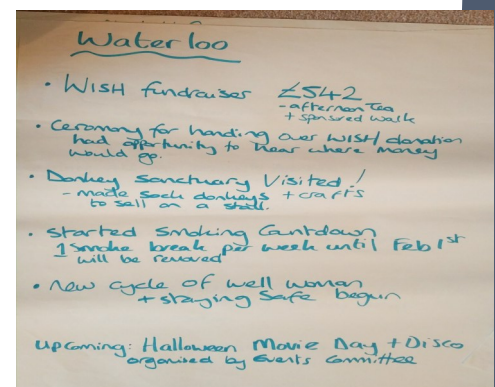 Waterloo
• WISH fundraiser £542
- afternoon tea
+ sponsored walk
• Ceremony for handing over WISH donation
had opportunity to hear where money
would go.
• Donkey Sanctuary Visited!
- made sock donkeys + crafts
to sell on a stall.
• Started Smoking Countdown
1 smoke break per week until Feb 1st
will be removed
• New cycle of well woman
+ staying safe begun
upcoming: Halloween Movie Day + Disco
organised by Events Committee